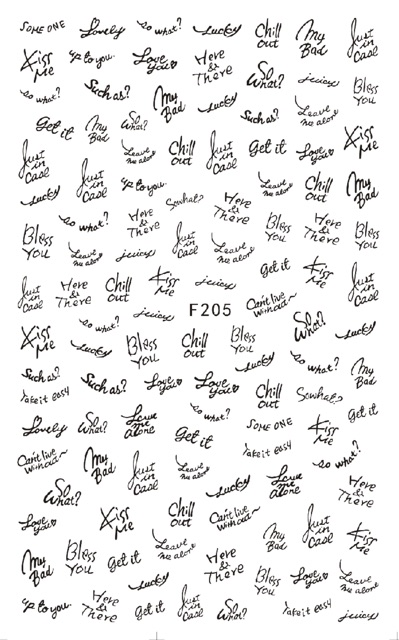 SOME ONE Lovely so what? Lucky Chill out My Bad Just in Case
Kiss Me up to you. Love You Here & There So What? juicy Bless You
so what? Such as? My Bad Lucky Such as? Leave me alone
Get it My Bad So What? Kiss Me
Just in Case Leave me alone Chill out Just in Case Get it Love You
Lucky Just in Case up to you. Sowhat? Here & There Leave me alone Chill out My Bad
Bless You so what? Here & There Just in Case Leave me alone Bless You Here & There Bless You
Leave me alone juicy Get it Kiss Me Just in Case
Just in Case Here & There Chill out Kiss Me juicy
so what? juicy F205 Can't live without~ So What? Lucky
Kiss Me Lucky Bless You Chill out Bless You Lucky so what? My Bad
Such as? Such as? Love You Love You Chill out Sowhat?
Take it easy so what? Get it
Lovely So What? Leave me alone Get it SOME ONE Kiss Me
Take it easy so what?
Can't live without~ My Bad Just in Case Leave me alone Lucky Leave me alone Here & There
So What?
Love You Kiss Me Chill out Can't live without~ My Bad Just in Case Kiss Me
My Bad Bless You Get it Leave me alone Here & There
Lucky Bless You Love You Leave me alone
up to you. Here & There Get it Just in Case So What? Take it easy juicy